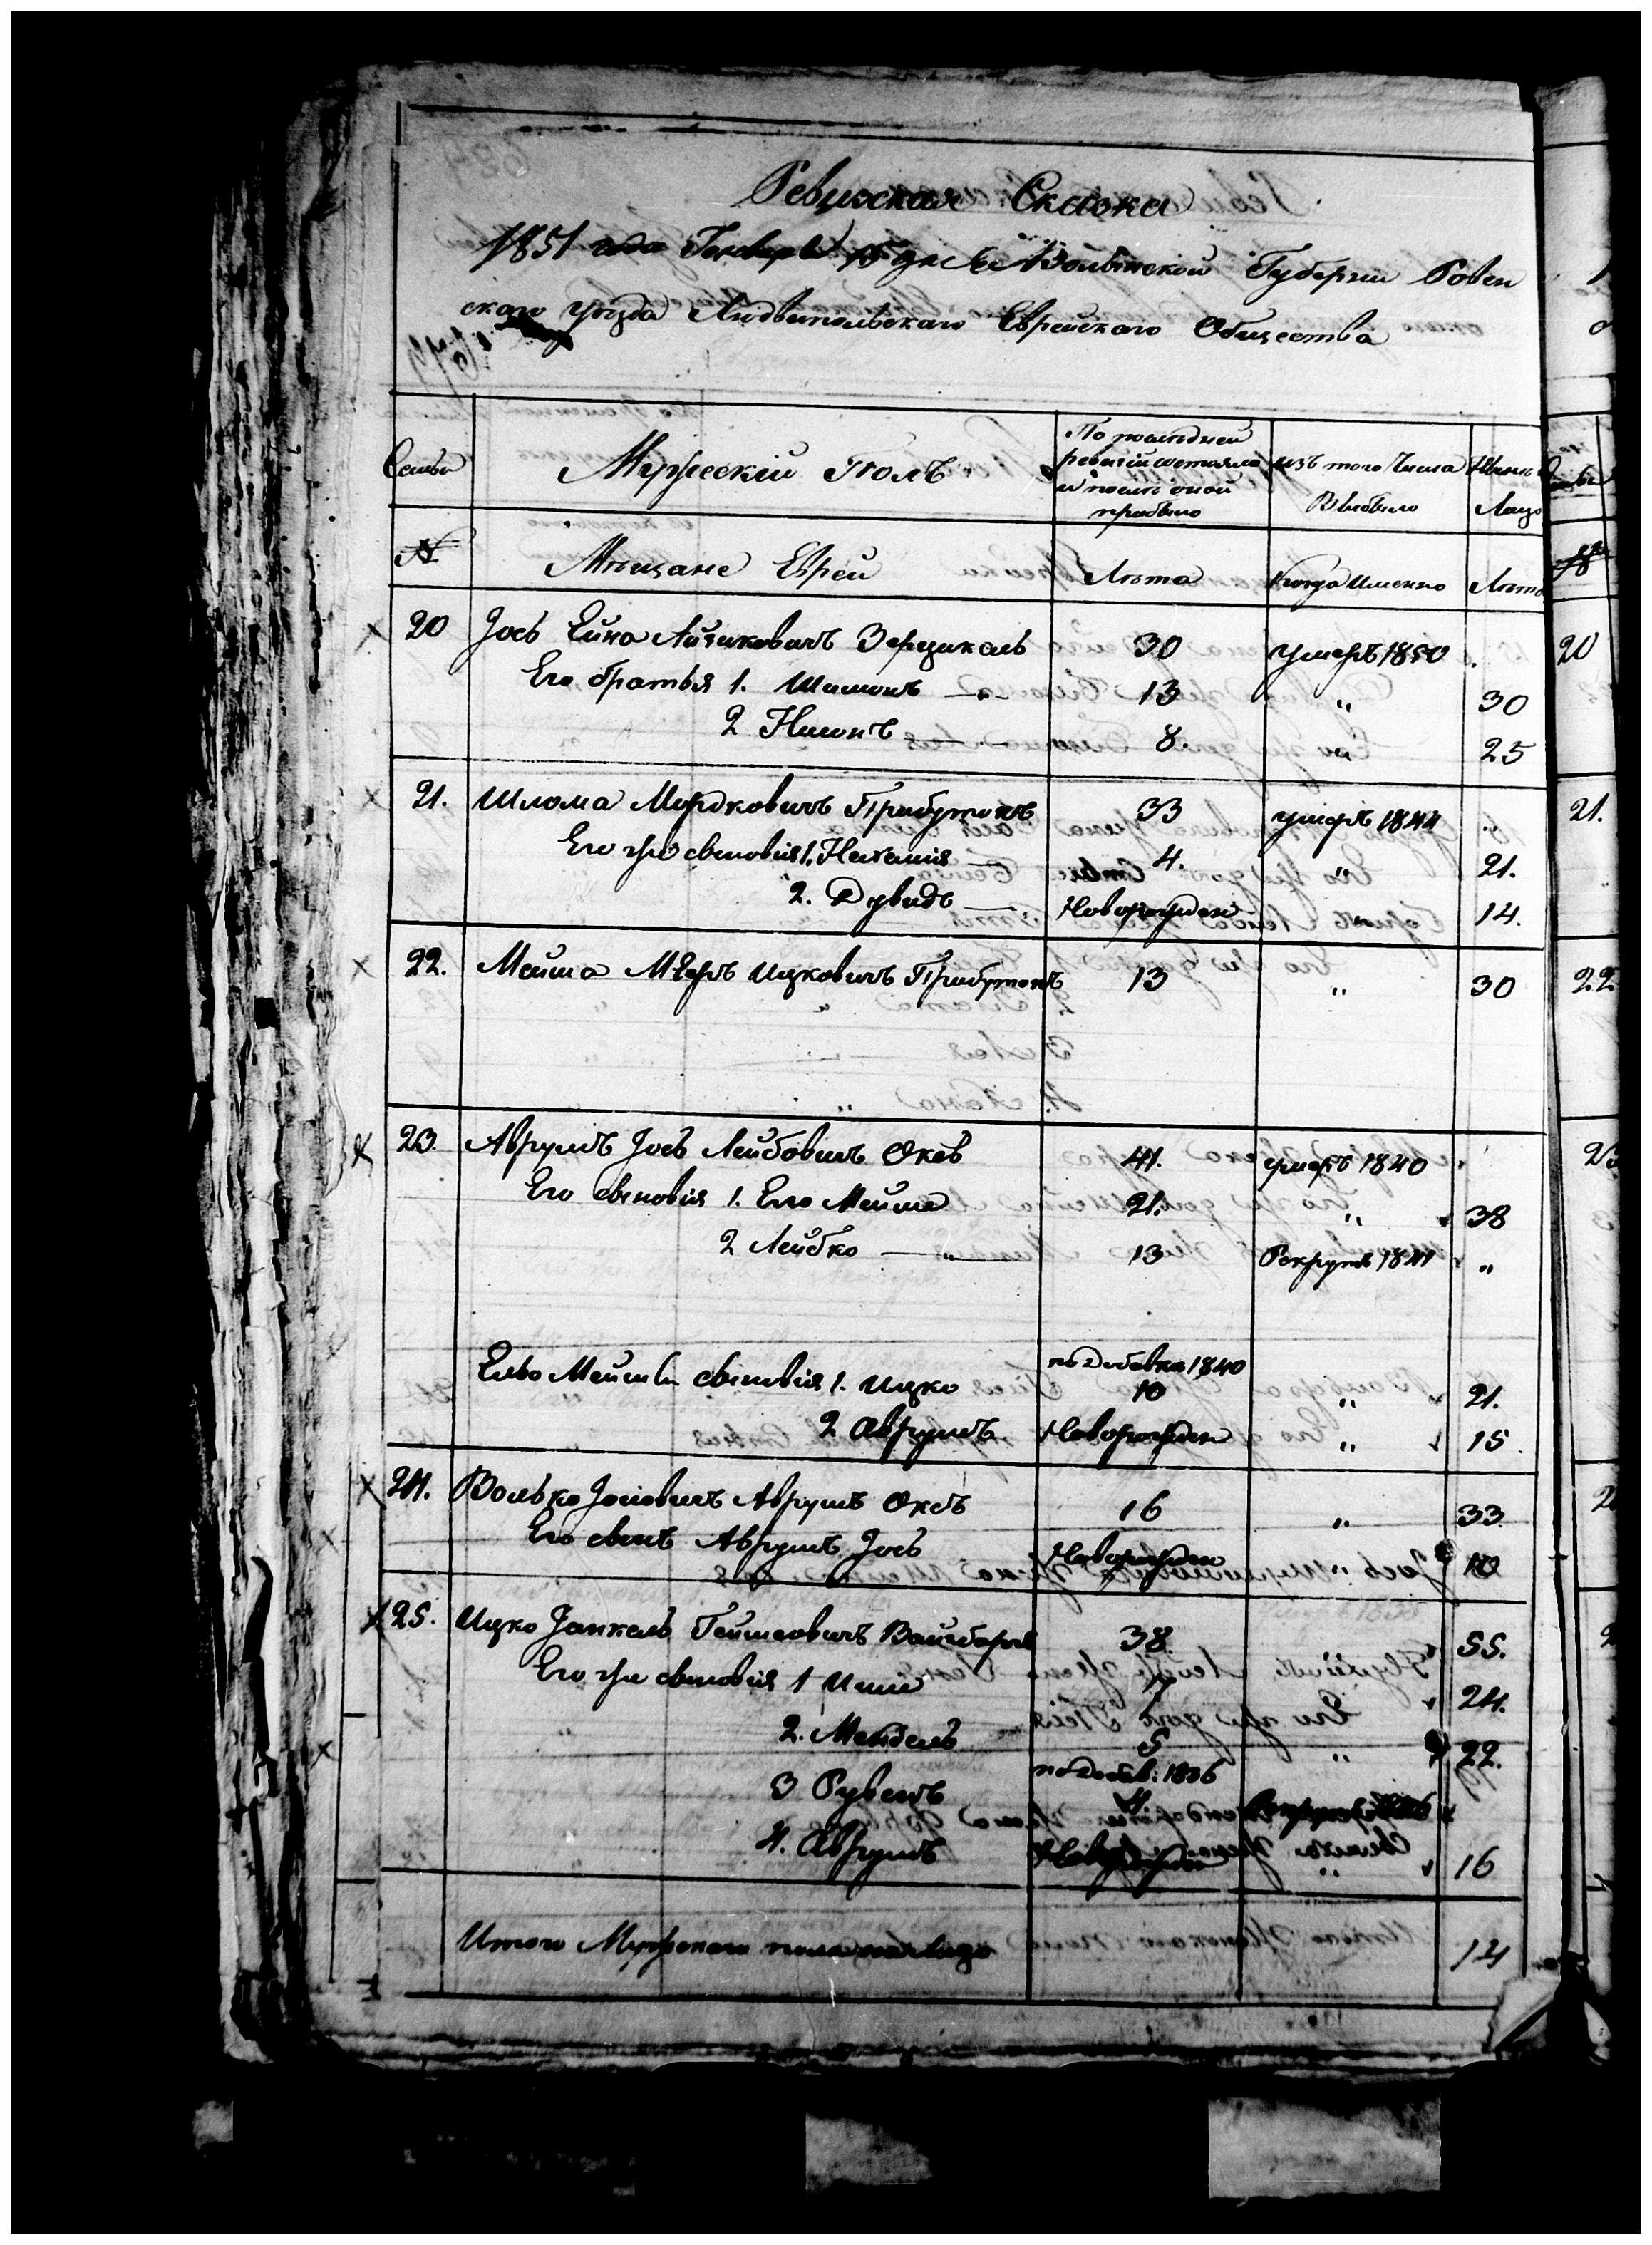 Ревизская Сказка
1851 года Генваря 15 дня Волынской Губернии Ровен
скаго уезда Людвипольскаго Еврейскаго Общества
Семьи Мужескій Полъ По последней ревизіи состояло и после оной прибыло Изъ того Числа Выбыло Ныне Лицо
№ Мещане Евреи Лета Когда Именно Лета
20 Іось Ейна Айзиковичъ Зерцикель 30 умеръ 1850
Его братья 1. Шимонъ — 13 " 30
2 Нисонъ — 8. " 25
21. Шлома Мордковичъ Прибутокъ 33 умеръ 1844 "
Его сыновія 1. Натанія — 4. " 21.
2. Дувидъ — Новорожден " 14.
22. Мейша Меръ Ицковичъ Прибутокъ 13 " 30
23. Аврумъ Іось Лейбовичъ Оксъ 41. умеръ 1840 "
Его сыновія 1. Ело Мейша 21. " 38
2 Лейбко — " — 13 Рекрутъ 1841 "
по добавке 1840
Ельо Мейшы сыновія 1. Ицко 10 " 21.
2 Аврумъ Новорожден " 15
24. Волько Іосіовичъ Аврумъ Оксъ 16 " 33
Его сынъ Аврумъ Іось Новорожден " 10
25. Ицко Янкель Гейшовичъ 38. " 55.
Его сыновія 1 24.
2. Мендель 5 " 22.
по добав: 1836
3 Рувенъ
4. Аврумъ Новорожден " 16
Итого Мужескаго пола на лицо 14
20
21.
22